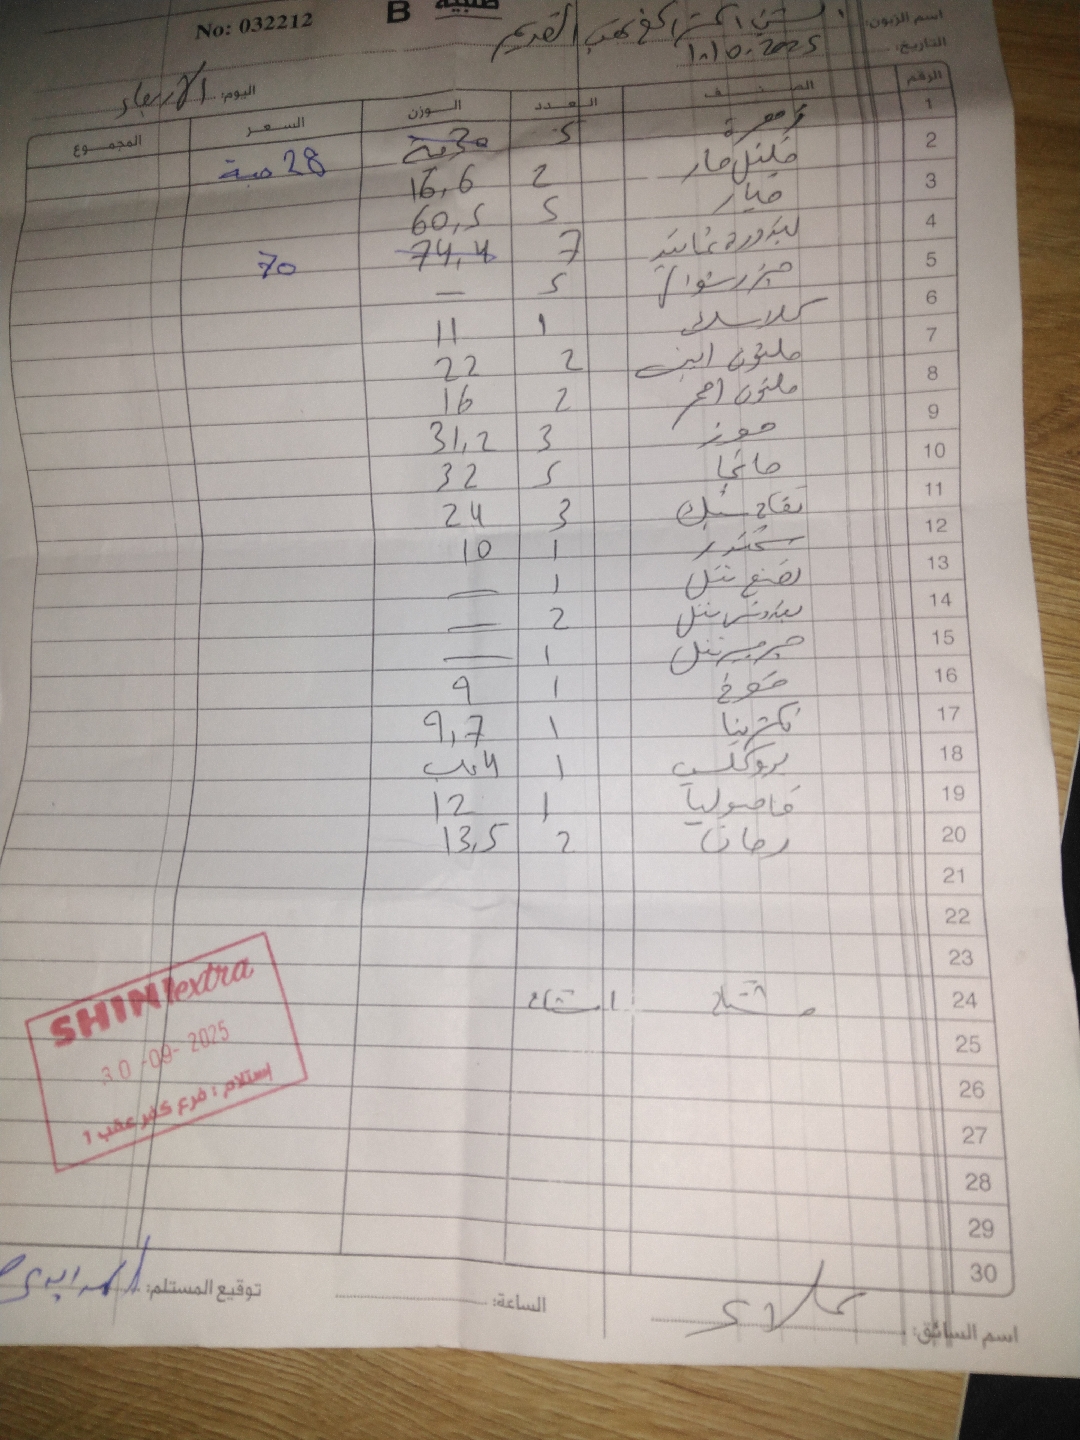 No: 032212 B طلبية
اسم الزبون: شني اكسترا كفر عقب القديم
التاريخ: 1.10.2025
اليوم: الأربعاء
الرقم الصنف العدد الوزن السعر المجموع
1 زهرة 5 30 حبة 28 حبة
2 فلفل حار 2 16,6
3 خيار 5 60,5
4 بندورة 7 74,4 70
5 جزر 5 —
6 1 11
7 2 22
8 احمر 2 16
9 موز 3 31,2
10 مانجا 5 32
11 تفاح 3 24
12 1 10
13 نعنع نتل 1 —
14 بقدونس نتل 2 —
15 جرجير نتل 1 —
16 خوخ 1 9
17 نكترينا 1 9,7
18 بروكلي 1
19 فاصوليا 1 12
20 رمان 2 13,5
21
22
23
24
25
26
27
28
29
30
SHINI extra
30-09-2025
إستلام: فرع كفر عقب 1
اسم السائق:
الساعة:
توقيع المستلم: